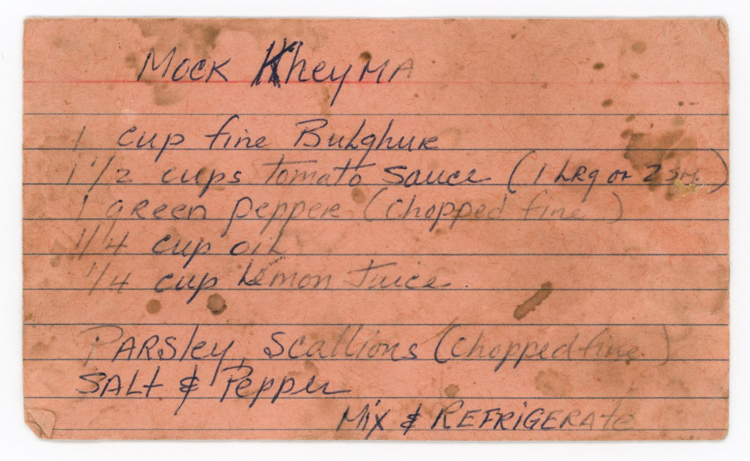 Mock Kheyma
1 cup fine Bulghur
1 1/2 cups tomato sauce (1 Lrg or 2 sm.)
1 green pepper (chopped fine)
1/4 cup oil
1/4 cup Lemon Juice
Parsley, Scallions (chopped fine)
Salt & Pepper
Mix & Refrigerate